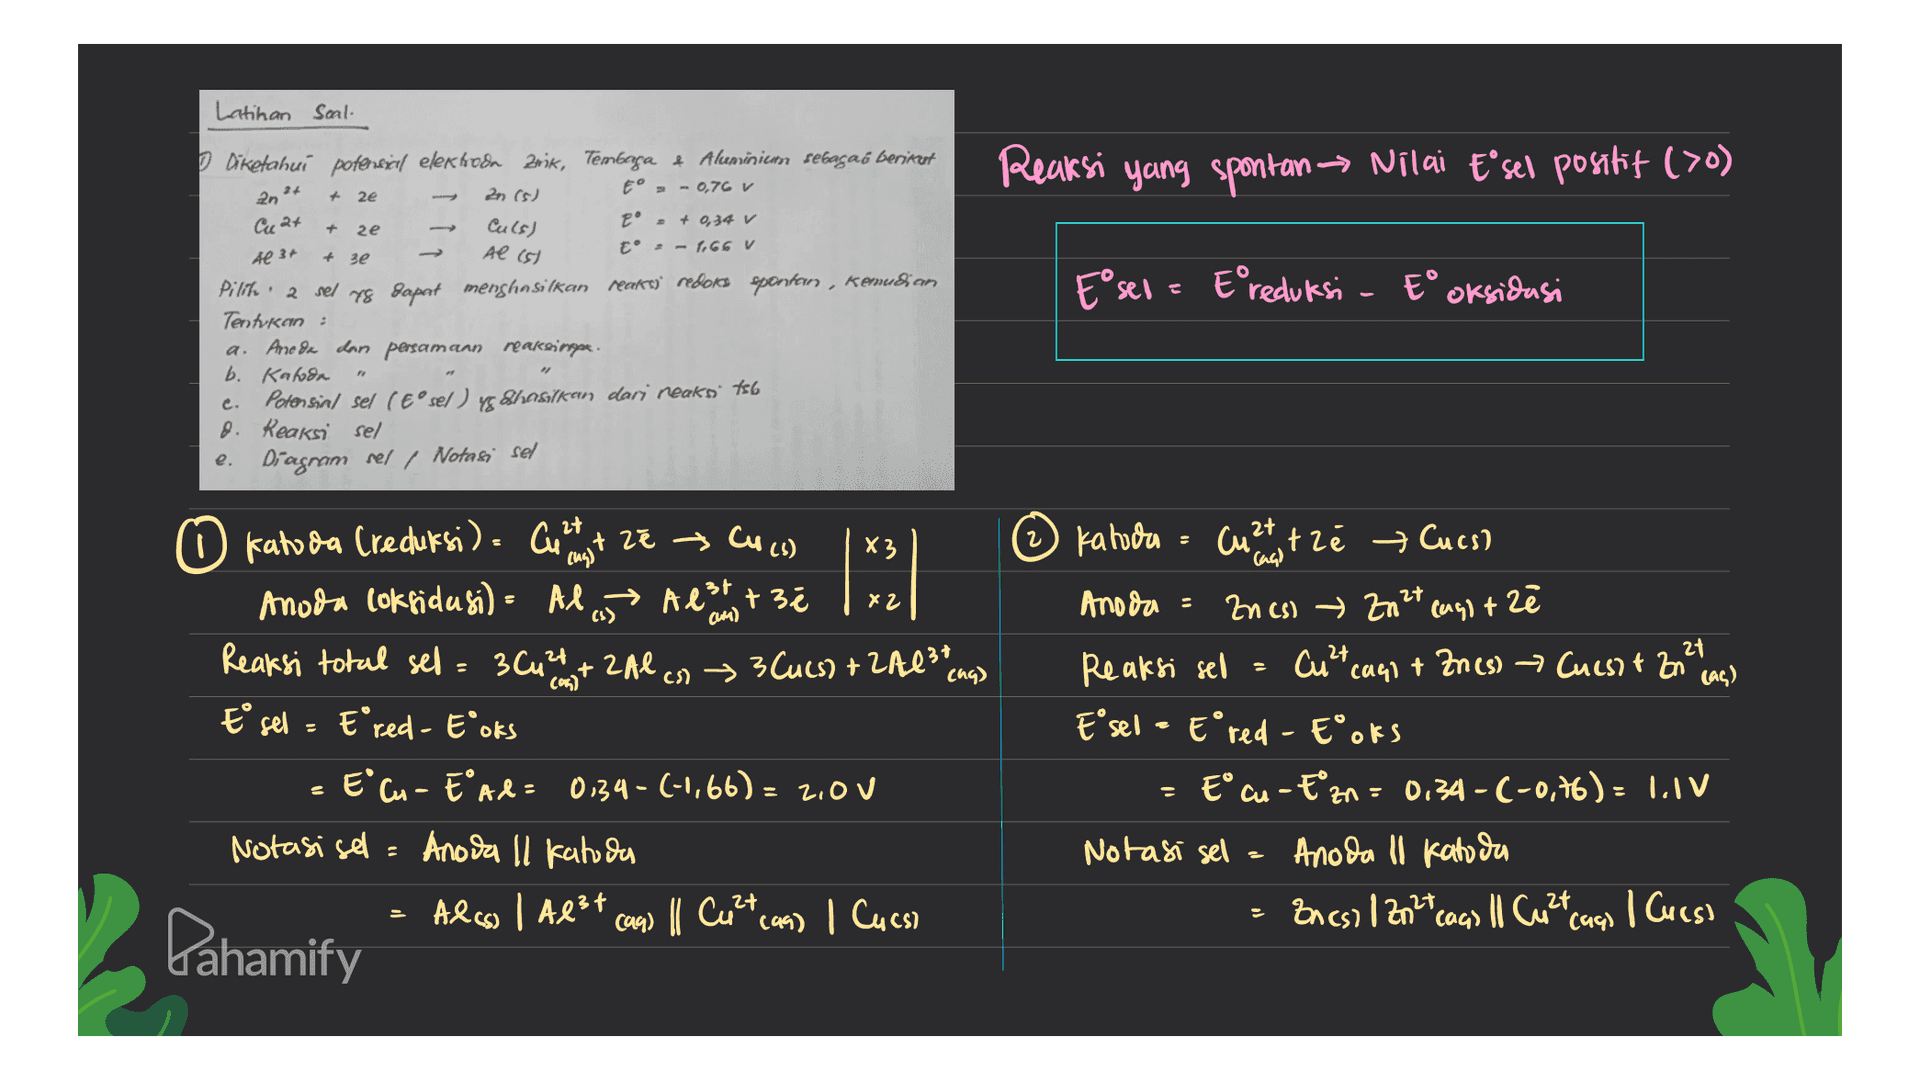 Latihan Soal.
① Diketahui potensial elektroda Zink, Tembaga & Aluminium sebagai berikut
Zn²⁺ + 2e → Zn (s) E° = - 0,76 V
Cu²⁺ + 2e → Cu(s) E° = + 0,34 V
Al³⁺ + 3e → Al (s) E° = - 1,66 V
Pilih 2 sel yg dapat menghasilkan reaksi redoks spontan, kemudian
Tentukan :
a. Anoda dan persamaan reaksinya.
b. Katoda " " "
c. Potensial sel (E° sel) yg dihasilkan dari reaksi tsb
d. Reaksi sel
e. Diagram sel / Notasi sel
Reaksi yang spontan → Nilai E°sel positif (>0)
E°sel = E°reduksi - E°oksidasi
① Katoda (reduksi) = Cu²⁺(aq) + 2ē → Cu(s) | x3 |
Anoda (oksidasi) = Al(s) → Al³⁺(aq) + 3ē | x2 |
Reaksi total sel = 3Cu²⁺(aq) + 2Al(s) → 3Cu(s) + 2Al³⁺(aq)
E°sel = E°red - E°oks
= E°Cu - E°Al = 0,34 - (-1,66) = 2,0 V
Notasi sel = Anoda || Katoda
= Al(s) | Al³⁺(aq) || Cu²⁺(aq) | Cu(s)
② Katoda = Cu²⁺(aq) + 2ē → Cu(s)
Anoda = Zn(s) → Zn²⁺(aq) + 2ē
Reaksi sel = Cu²⁺(aq) + Zn(s) → Cu(s) + Zn²⁺(aq)
E°sel = E°red - E°oks
= E°Cu - E°Zn = 0,34 - (-0,76) = 1.1 V
Notasi sel = Anoda || Katoda
= Zn(s) | Zn²⁺(aq) || Cu²⁺(aq) | Cu(s)
Pahamify